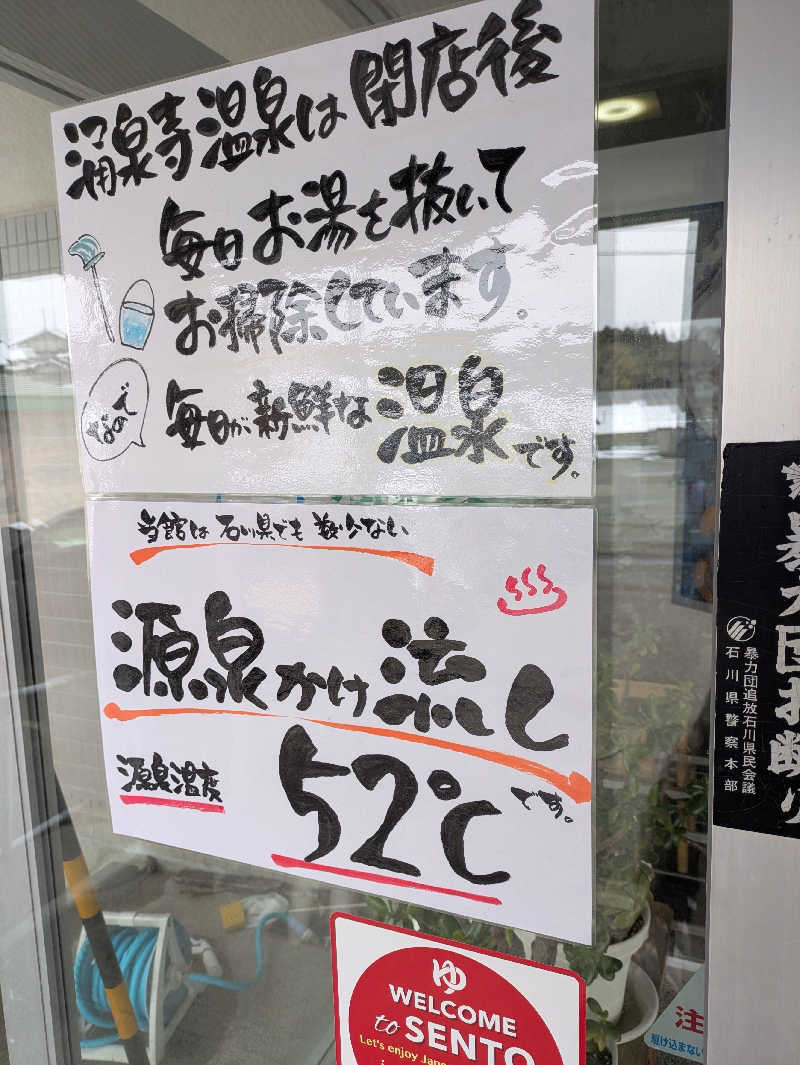 湧泉寺温泉は閉店後
毎日お湯を抜いて
お掃除しています。
なので
毎日が新鮮な温泉です。
当館は石川県でも数少ない
源泉かけ流し
源泉温度
52℃です。
ゆ
WELCOME
to SENTO
Let's enjoy
暴力団追放石川県民会議
石川県警察本部
注
駆け込まない